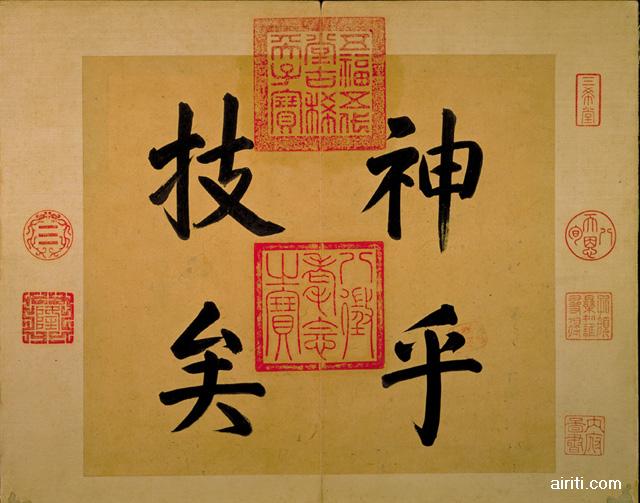 神乎
技矣
五福五代
堂古稀
天子寶
八徵
耄念
之寶
三希堂
八旬天恩
隆
airiti.com